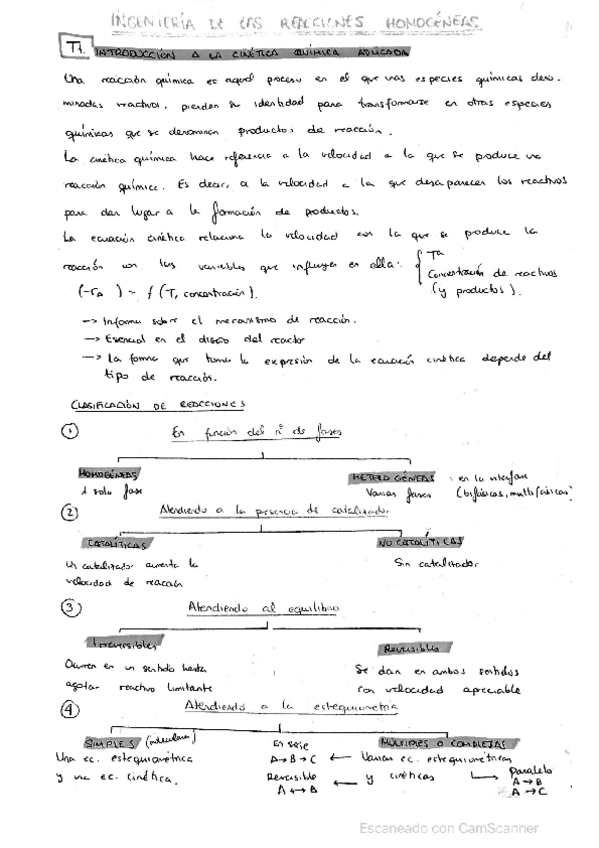 INGENIERÍA DE LAS REACCIONES HOMOGÉNEAS
T1. INTRODUCCIÓN A LA CINÉTICA QUÍMICA APLICADA
Una reacción química es aquel proceso en el que unas especies químicas deno-
minadas reactivos, pierden su identidad para transformarse en otras especies
químicas que se denominan productos de reacción.
La cinética química hace referencia a la velocidad a la que se produce una
reacción química. Es decir, a la velocidad a la que desaparecen los reactivos
para dar lugar a la formación de productos.
La ecuación cinética relaciona la velocidad con la que se produce la
reacción con las variables que influyen en ella: { Tª
Concentración de reactivos
(y productos).
(-rA) = f (T, concentración).
-> Informa sobre el mecanismo de reacción.
-> Esencial en el diseño del reactor
-> La forma que toma la expresión de la ecuación cinética depende del
tipo de reacción.
CLASIFICACIÓN DE REACCIONES
① En función del nº de fases
HOMOGÉNEAS
1 sola fase
HETEROGÉNEAS : en la interfase
Varias fases (bifásicas, multifásicas)
② Atendiendo a la presencia de catalizador
CATALÍTICAS
Un catalizador aumenta la
velocidad de reacción
NO CATALÍTICAS
Sin catalizador
③ Atendiendo al equilibrio
Irreversibles
Ocurren en un sentido hasta
agotar reactivo limitante
Reversibles
Se dan en ambos sentidos
con velocidad apreciable
④ Atendiendo a la estequiometría
SIMPLES
Una ec. estequiométrica
y una ec. cinética.
En serie
A→B→C
Reversible
A ↔ B
MÚLTIPLES O COMPLEJAS
Varias ec. estequiométricas
y cinéticas
Paralelo
A → B
A → C
Escaneado con CamScanner